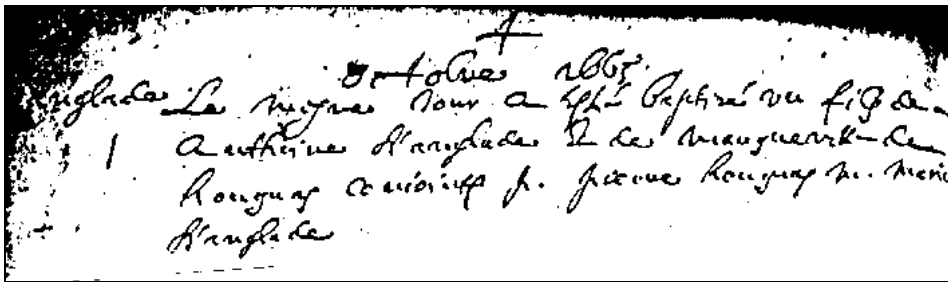 octobre 1665.
anglade Le mesme Jour a esté baptizé un filz de
Anthoine d'anglade & de marguerite de
Rouguay p. pierre Rouguay m. marie
d'anglade